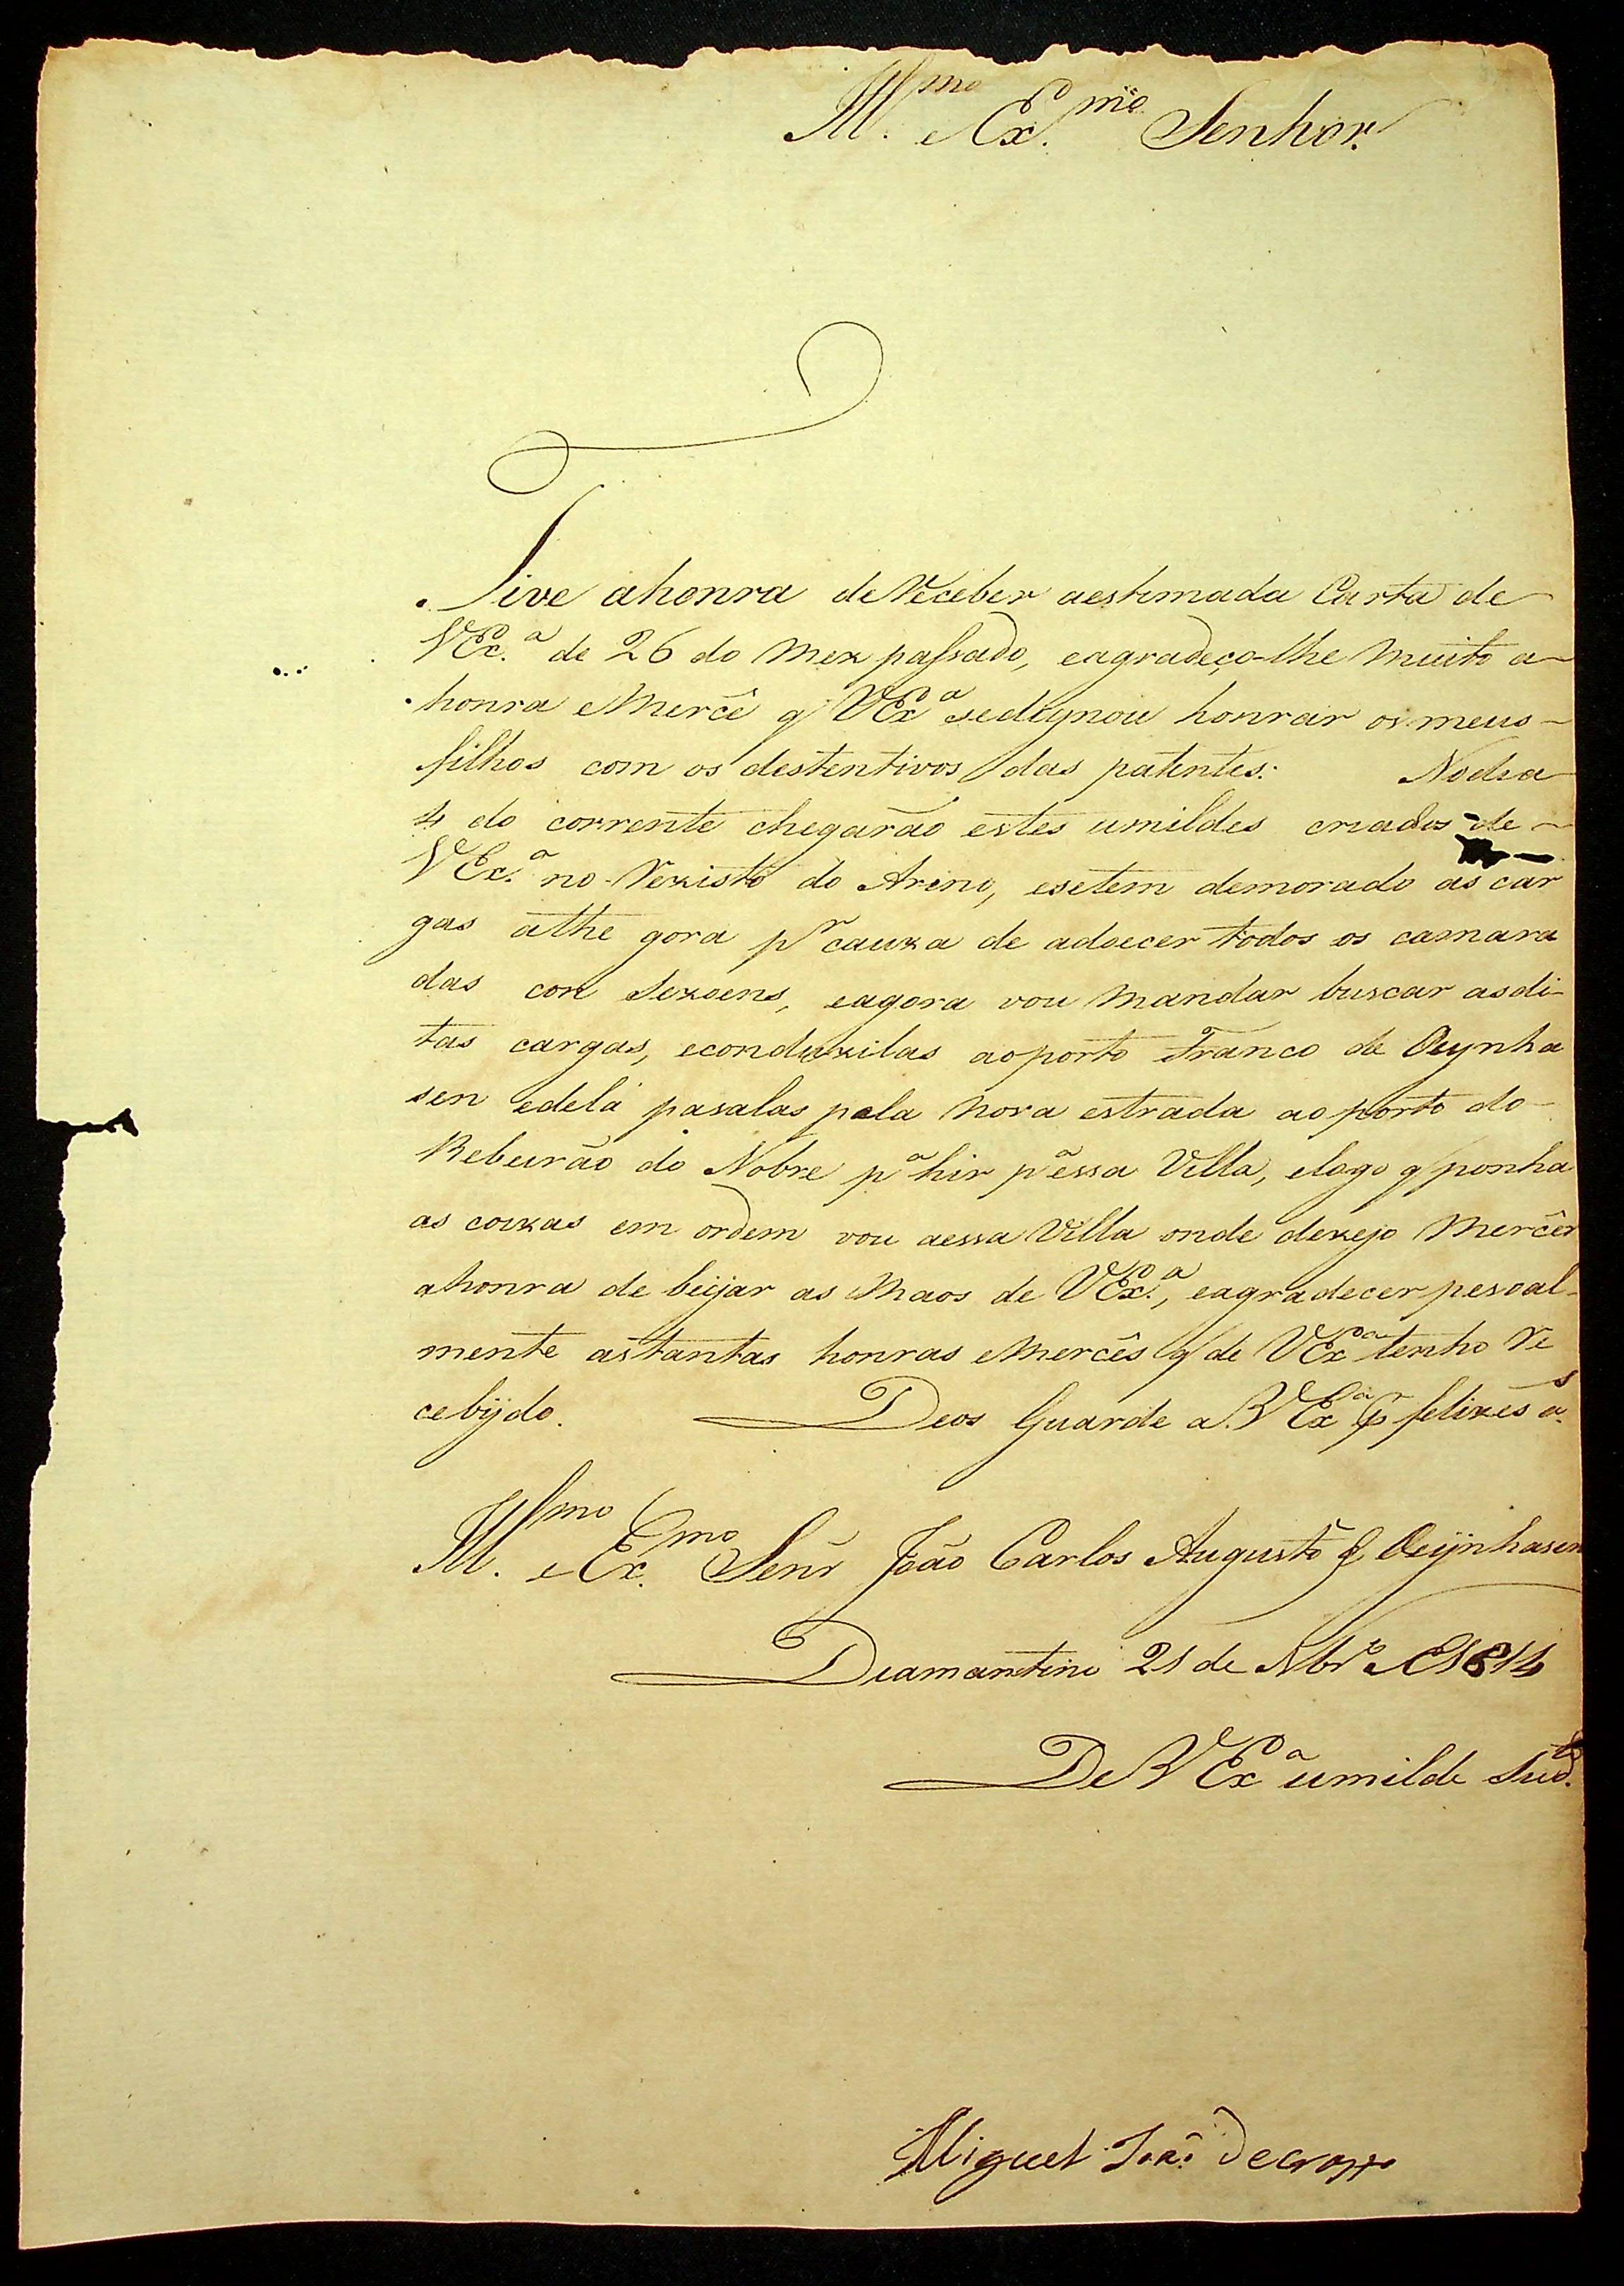 Ill.mo e Ex.mo Senhor.
Tive ahonra deReceber aestimada Carta de
VEx.a de 26 do mez passado, eagradeço-lhe muito a
honra eMercê q VExa sedignou honrar os meus
filhos com os destentivos das patentes: Nodia
4 do corrente chegarão estes umildes criados de
VEx.a no Rezisto do Areno, esetem demorado as car
gas athe gora pr cauza de adoecer todos os camara
das con Sezoens, eagora vou mandar buscar asdi-
tas cargas, econduzilas aoporto Franco de Oeynha
sen edelá pasalas pela nova estrada ao porto do
Rebeirão do Nobre pa hir pa essa Villa, elogo q ponha
as coizas em ordem vou aessa Villa onde dezejo Mercêr
ahonra de beijar as Maos de VEx.a, eagradecer pesoal-
mente astantas honras eMercês q de VExa tenho Re
cebijdo. Deos Guarde a VExa pr felizes as
Ill.mo e Ex.mo Senr João Carlos Augusto Oeijnhasen
Diamantino 21 de Nbro 1814
De VExa umilde
Miguel